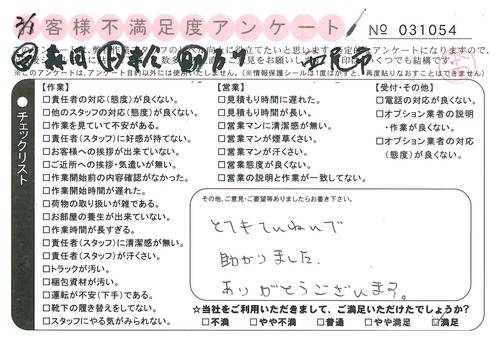 お客様不満足度アンケート
No 031054
このアンケートは、
※このアンケートは、アンケート目的以外には使用いたしません。(※情報保護シールは1度はがすと、再度貼りなおすことはできません)
●チェックリスト
【作業】
□責任者の対応(態度)が良くない。
□他のスタッフの対応(態度)が良くない。
□作業を見ていて不安がある。
□責任者(スタッフ)に好感が持てない。
□お客様への挨拶が出来ていない。
□ご近所への挨拶・気遣いが無い。
□作業開始前の内容確認がなかった。
□作業開始時間が遅れた。
□荷物の取り扱いが雑である。
□お部屋の養生が出来ていない。
□作業時間が長すぎる。
□責任者(スタッフ)に清潔感が無い。
□責任者(スタッフ)が汗くさい。
□トラックが汚い。
□梱包資材が汚い。
□運転が不安(下手)である。
□靴下の履き替えをしてない。
□スタッフにやる気がみられない。
【営業】
□見積もり時間に遅れた。
□見積もり時間が長い。
□営業マンに清潔感が無い。
□営業マンが煙草くさい。
□営業マンが汗くさい。
□営業態度が良くない。
□営業の説明と作業が一致してない。
【受付・その他】
□電話の対応が良くない。
□オプション業者の説明
・作業が良くない。
□オプション業者の対応
(態度)が良くない。
その他、ご意見・ご要望等ありましたらお書き下さい。
とてもていねいで
助かりました。
ありがとうございます。
☆当社をご利用いただきまして、ご満足いただけたでしょうか?
□不満 □やや不満 □普通 □やや満足 ☑満足